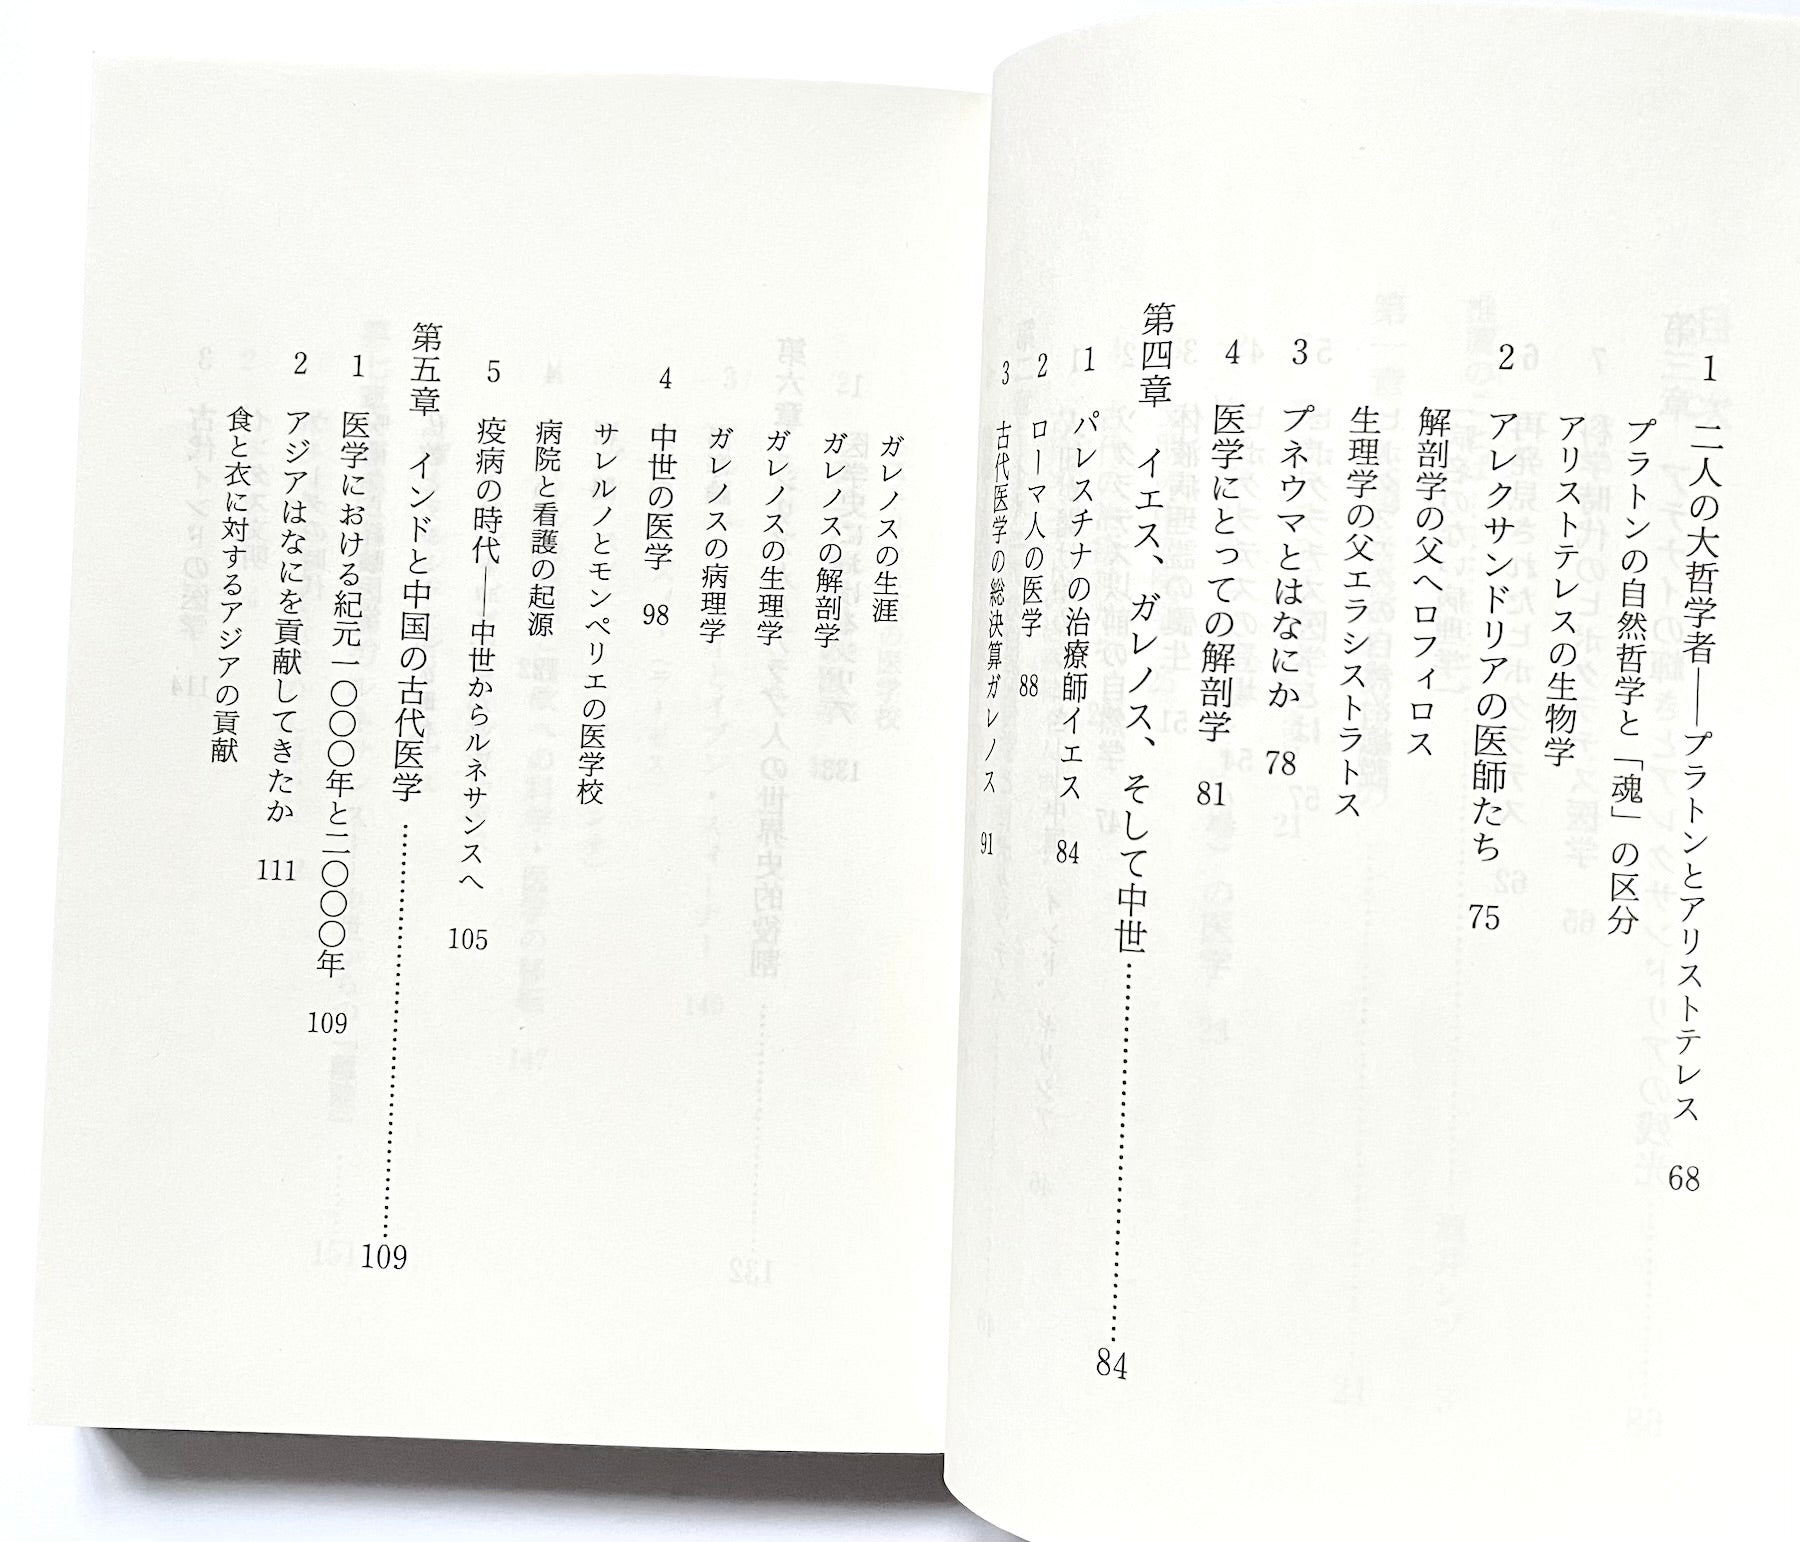 1 二人の大哲学者――プラトンとアリストテレス 68
プラトンの自然哲学と「魂」の区分
アリストテレスの生物学
2 アレクサンドリアの医師たち 75
解剖学の父ヘロフィロス
生理学の父エラシストラトス
3 プネウマとはなにか 78
4 医学にとっての解剖学 81
第四章 イエス、ガレノス、そして中世 84
1 パレスチナの治療師イエス 84
2 ローマ人の医学 88
3 古代医学の総決算ガレノス 91
ガレノスの生涯
ガレノスの解剖学
ガレノスの生理学
ガレノスの病理学
4 中世の医学 98
サレルノとモンペリエの医学校
病院と看護の起源
5 疫病の時代――中世からルネサンスへ 105
第五章 インドと中国の古代医学 109
1 医学における紀元一〇〇〇年と二〇〇〇年 109
2 アジアはなにを貢献してきたか 111
食と衣に対するアジアの貢献